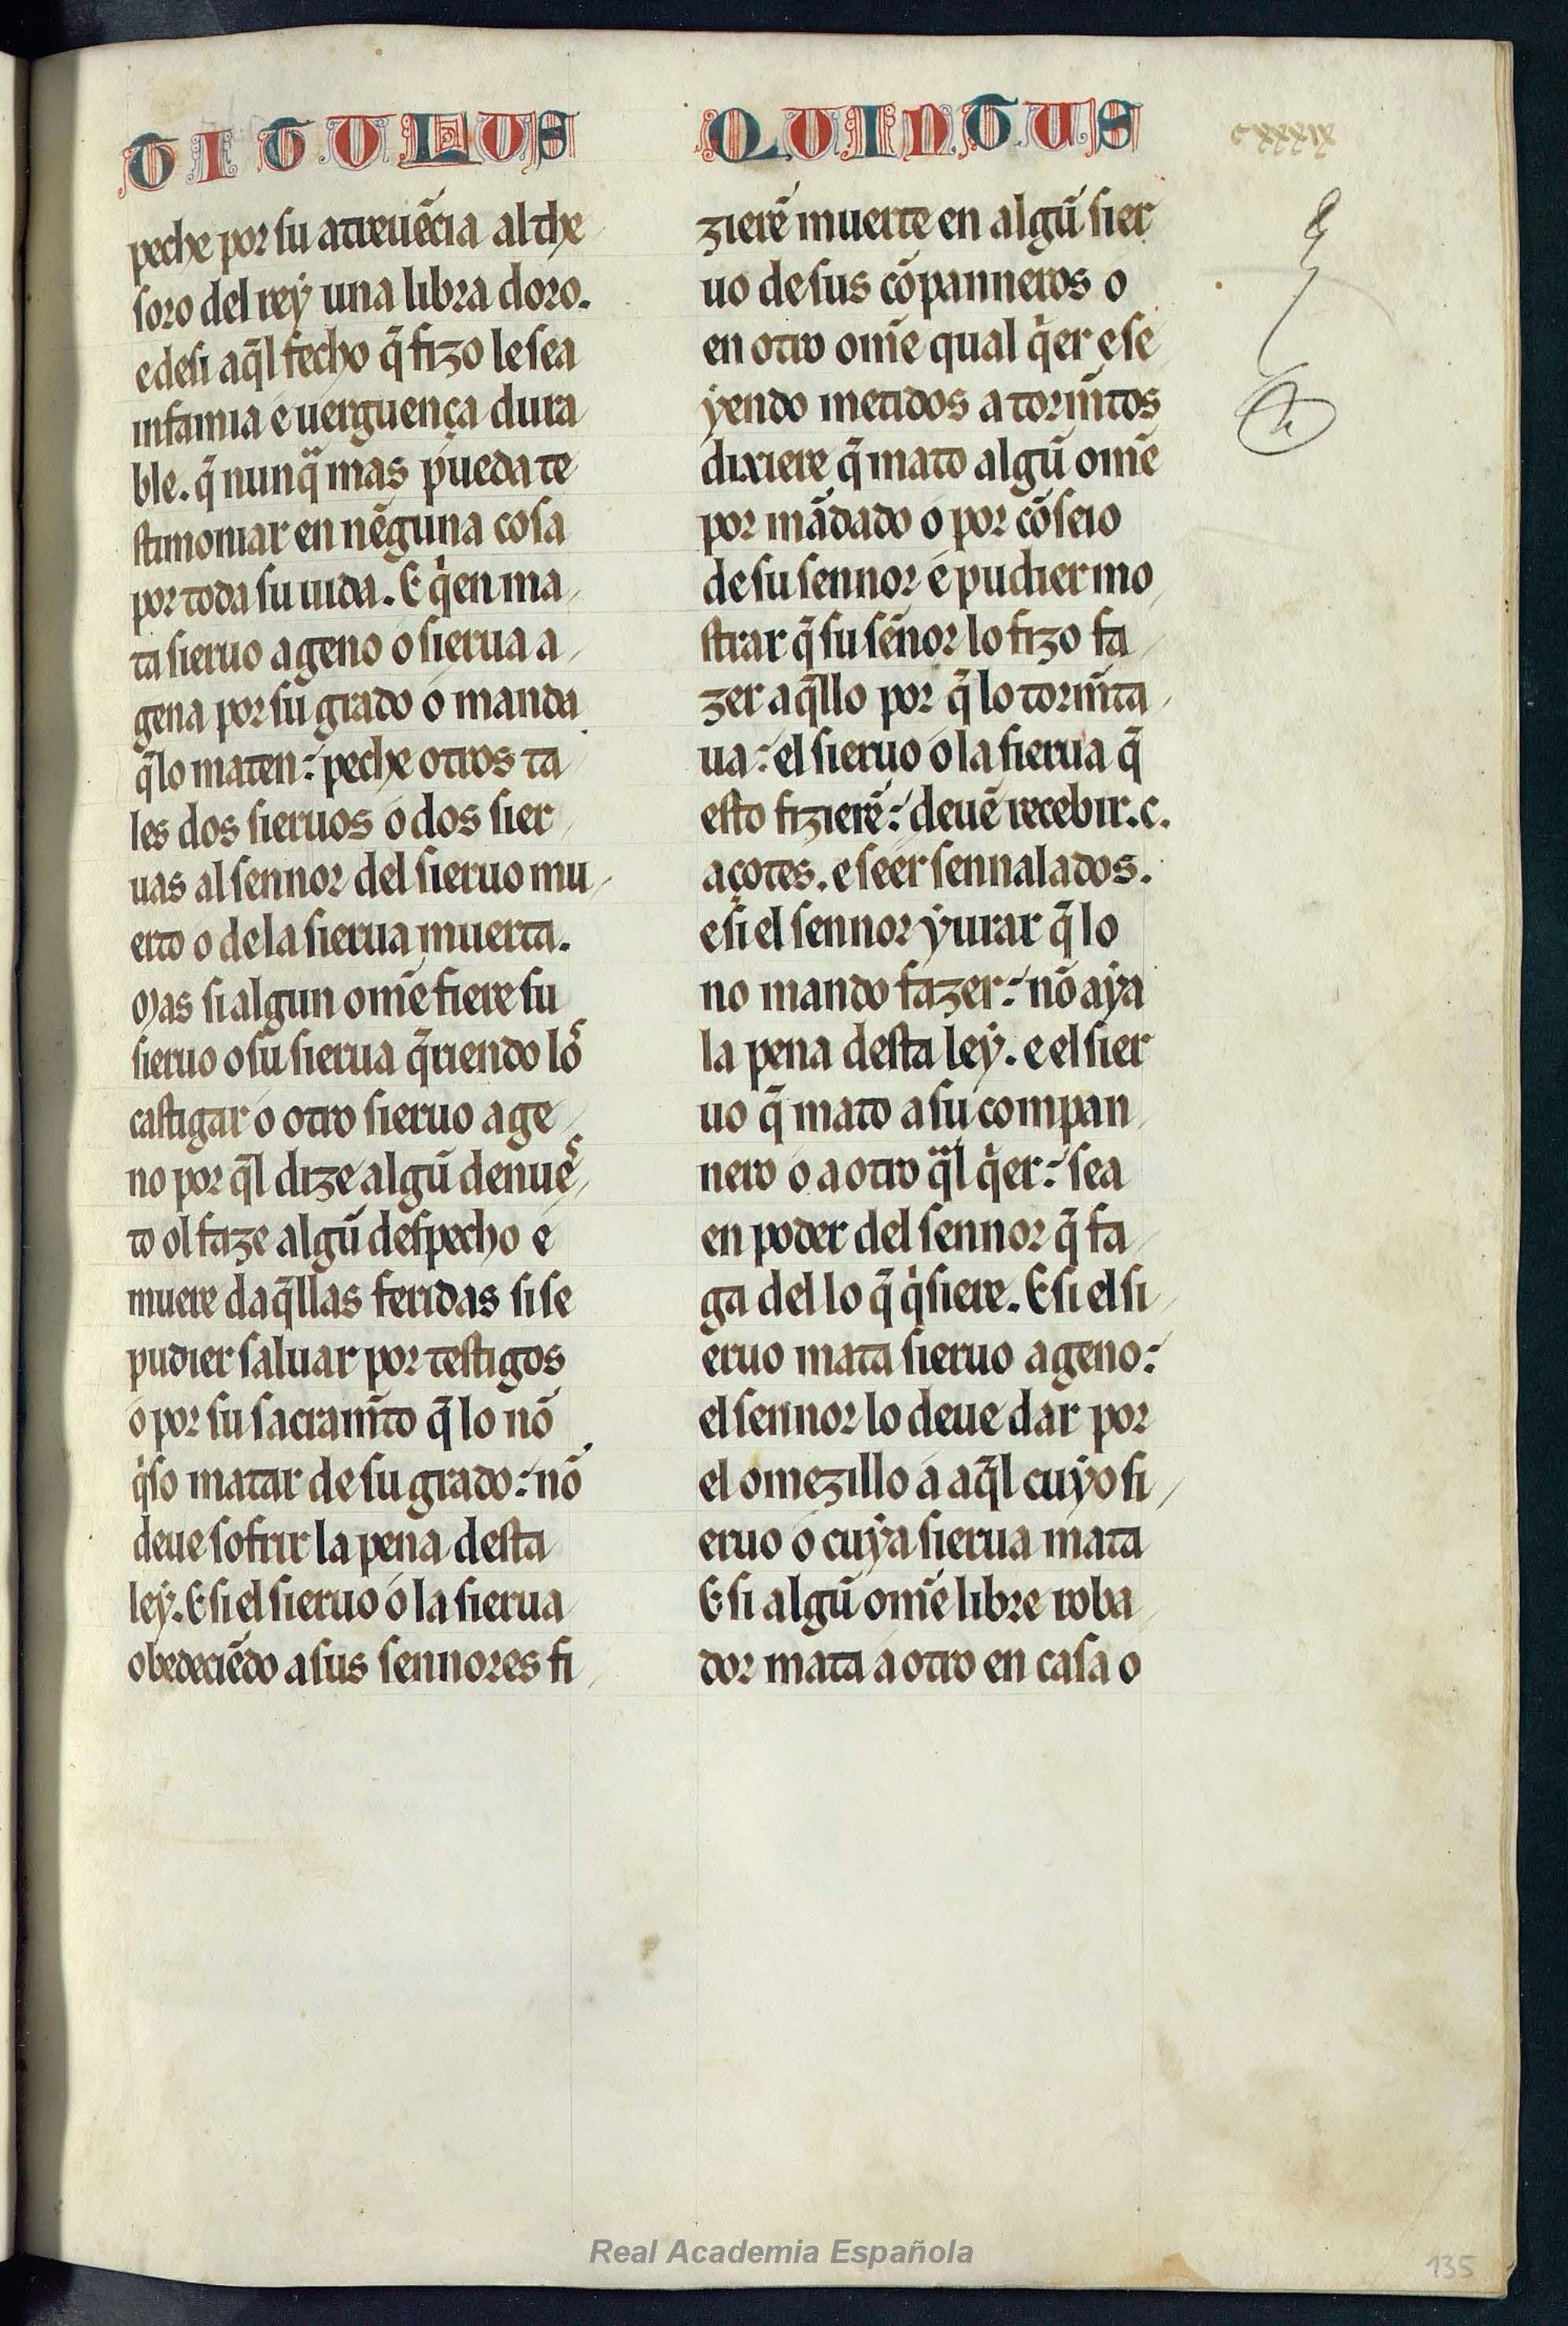 TITULUS QUINTUS
cxxxix
peche por su atreuẽcia al the
soro del rey una libra doro.
e desi aq̃l fecho q̃ fizo le sea
infamia e uerguença dura
ble. q̃ nunq̃ mas pueda te
stimoniar en nẽguna cosa
por toda su uida. E qͥen ma
ta sieruo ageno o sierua a
gena por su grado o manda
q̃lo maten: peche otros ta
les dos sieruos o dos sier
uas al sennor del sieruo mu
erto o de la sierua muerta.
Mas si algun om̃e fiere su
sieruo o su sierua q̃riendo loˢ
castigar o otro sieruo age
no por q̃l dize algũ denueˢ
to ol faze algũ despecho e
muere daq̃llas feridas si se
pudier saluar por testigos
o por su sacram̃to q̃ lo nõ
qͥso matar de su grado: nõ
deue sofrir la pena desta
ley. E si el sieruo o la sierua
obedeciẽdo a sus sennores fi
zierẽ muerte en algũ sier
uo de sus cõpanneros o
en otro om̃e qual qͥer e se
yendo metidos a torm̃tos
dixiere q̃ mato algũ om̃e
por mãdado o por cõseio
de su sennor e pudier mo
strar q̃ su sẽnor lo fizo fa
zer aq̃llo por q̃ lo torm̃ta
ua: el sieruo o la sierua q̃
esto fizierẽ: deuẽ recebir .c.
açotes. e seer sennalados.
e si el sennor yurar q̃ lo
no mando fazer: nõ aya
la pena desta ley. e el sier
uo q̃ mato a su compan
nero o a otro qᵃl qͥer: sea
en poder del sennor q̃ fa
ga del lo q̃ qͥsiere. E si el si
eruo mata sieruo ageno:
el sennor lo deue dar por
el omezillo a aq̃l cuyo si
eruo o cuya sierua mata
E si algũ om̃e libre roba
dor mata a otro en casa o
Real Academia Española
135